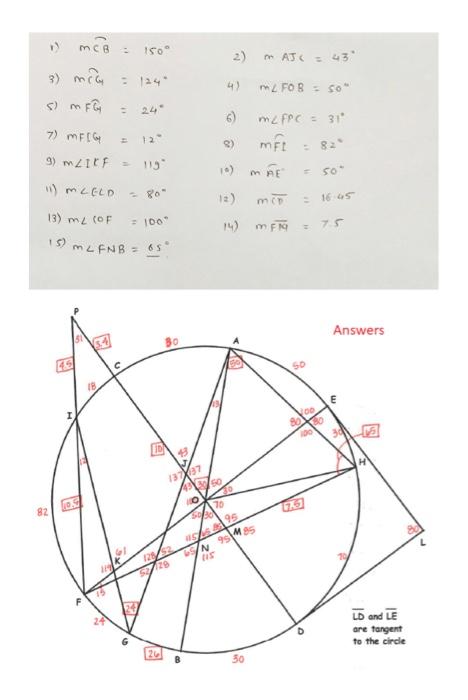 1) mCB = 150°
2) m AJC = 43°
3) mCG = 124°
4) m∠FOB = 50°
5) m FG = 24°
6) m∠FPC = 31°
7) mFIG = 12°
8) mFI = 82°
9) m∠IKF = 119°
10) m AE = 50°
11) m∠ELD = 80°
12) m CD = 16.45
13) m∠COF = 100°
14) m FM = 7.5
15) m∠FNB = 65°
Answers
P
31
3.4
4.5
80
A
50
C
18
55
I
E
13
100
80 80
100
30
65
H
12
10
43
J
137 137
43 30 50
O
30
82
10.5
70
50 30
7.5
95
86
M 85
95
115 65
N
65
115
80
L
61
K
119
128 52
52 128
70
F
15
24
24
G
26
B
30
D
LD and LE
are tangent
to the circle